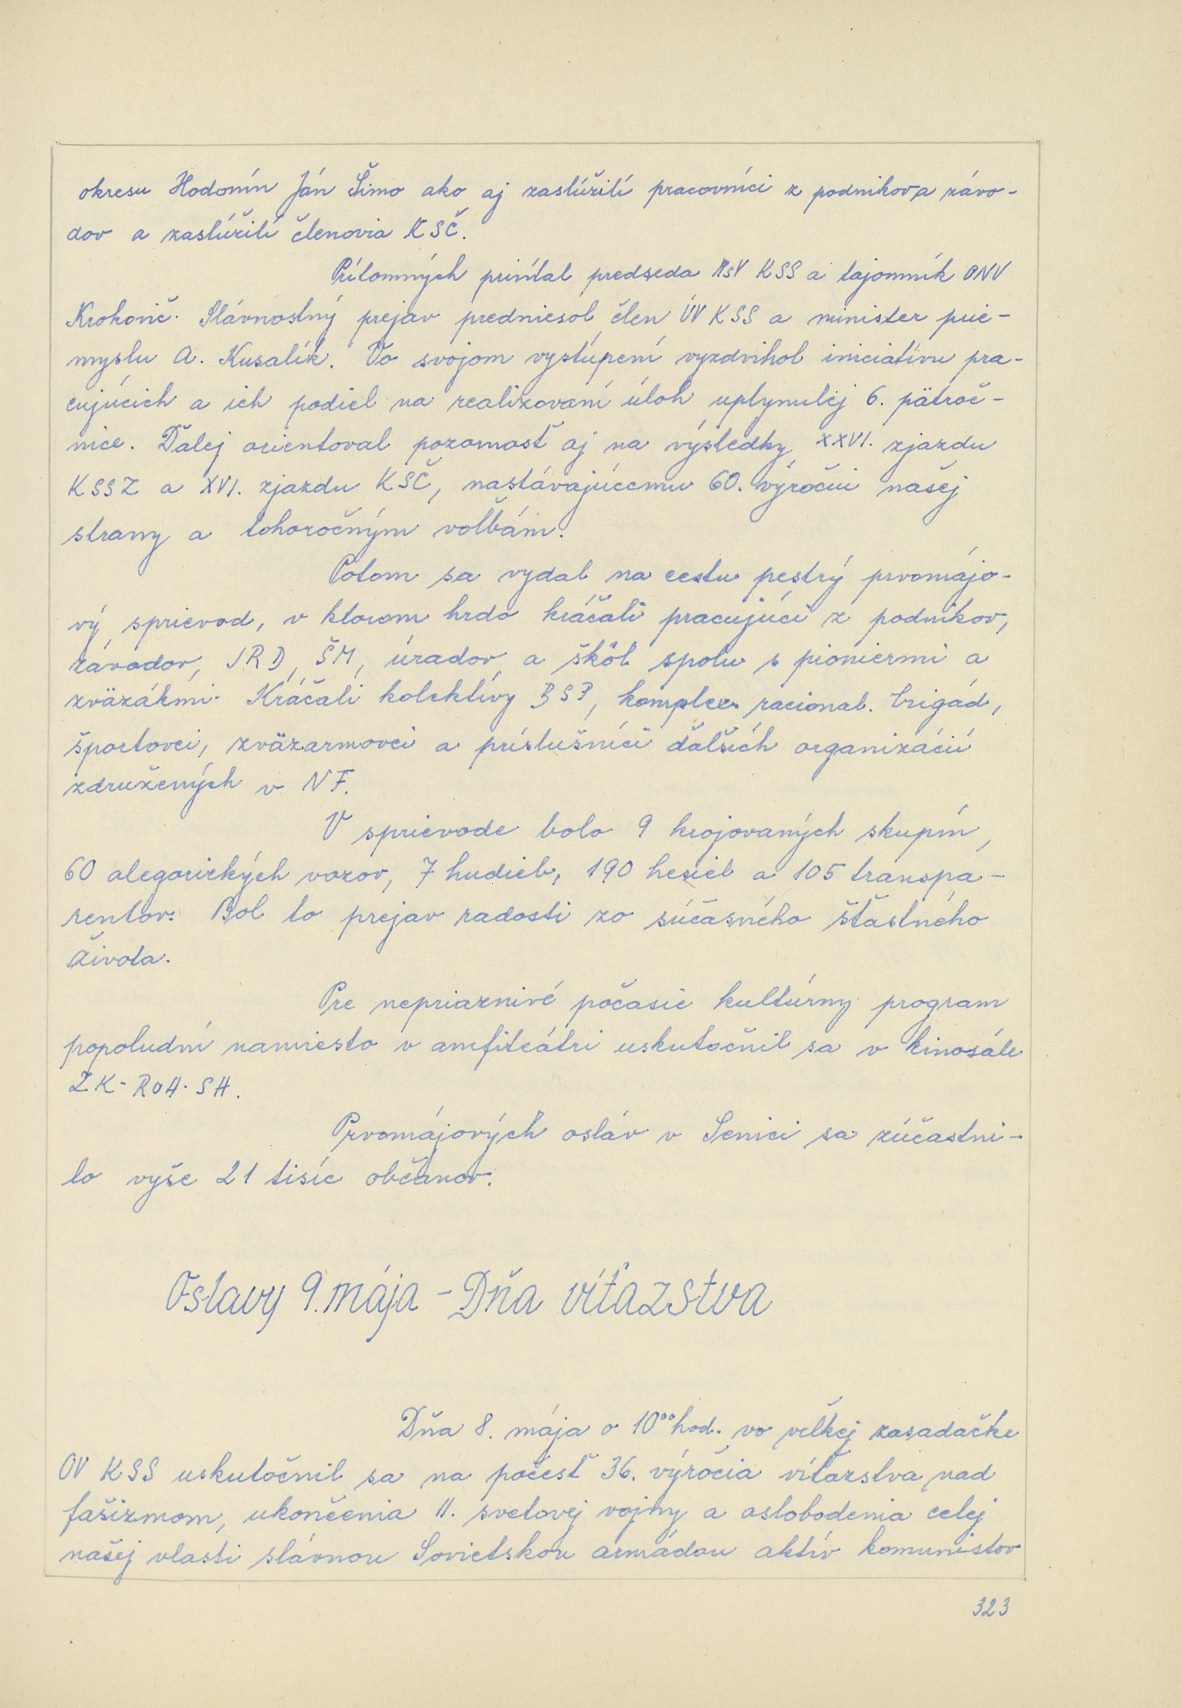 okresu Hodonín Ján Šimo ako aj zaslúžilí pracovníci z podnikov a závo-
dov a zaslúžilí členovia KSČ.
Prítomných privítal predseda MsV KSS a tajomník ONV
Krokovič. Slávnostný prejav predniesol člen ÚV KSS a minister prie-
myslu A. Kusalík. Vo svojom vystúpení vyzdvihol iniciatívu pra-
cujúcich a ich podiel na realizovaní úloh uplynulej 6. pätroč-
nice. Ďalej orientoval pozornosť aj na výsledky XXVI. zjazdu
KSSZ a XVI. zjazdu KSČ, nastávajúcemu 60. výročiu našej
strany a tohoročným voľbám.
Potom sa vydal na cestu pestrý prvomájo-
vý sprievod, v ktorom hrdo kráčali pracujúci z podnikov,
závodov, JRD, ŠM, úradov a škôl spolu s pioniermi a
zväzákmi. Kráčali kolektívy BSP, komplex. racional. brigád,
športovci, zväzarmovci a príslušníci ďalších organizácií
združených v NF.
V sprievode bolo 9 krojovaných skupín,
60 alegorických vozov, 7 hudieb, 190 hesiel a 105 transpa-
rentov. Bol to prejav radosti zo súčasného šťastného
života.
Pre nepriaznivé počasie kultúrny program
popoludní namiesto v amfiteátri uskutočnil sa v kinosále
ZK-ROH-SH.
Prvomájových osláv v Senici sa zúčastni-
lo vyše 21 tisíc občanov.
Oslavy 9. mája - Dňa víťazstva
Dňa 8. mája o 10⁰⁰ hod. vo veľkej zasadačke
OV KSS uskutočnil sa na počesť 36. výročia víťazstva nad
fašizmom, ukončenia II. svetovej vojny a oslobodenia celej
našej vlasti slávnou Sovietskou armádou aktív komunistov
323